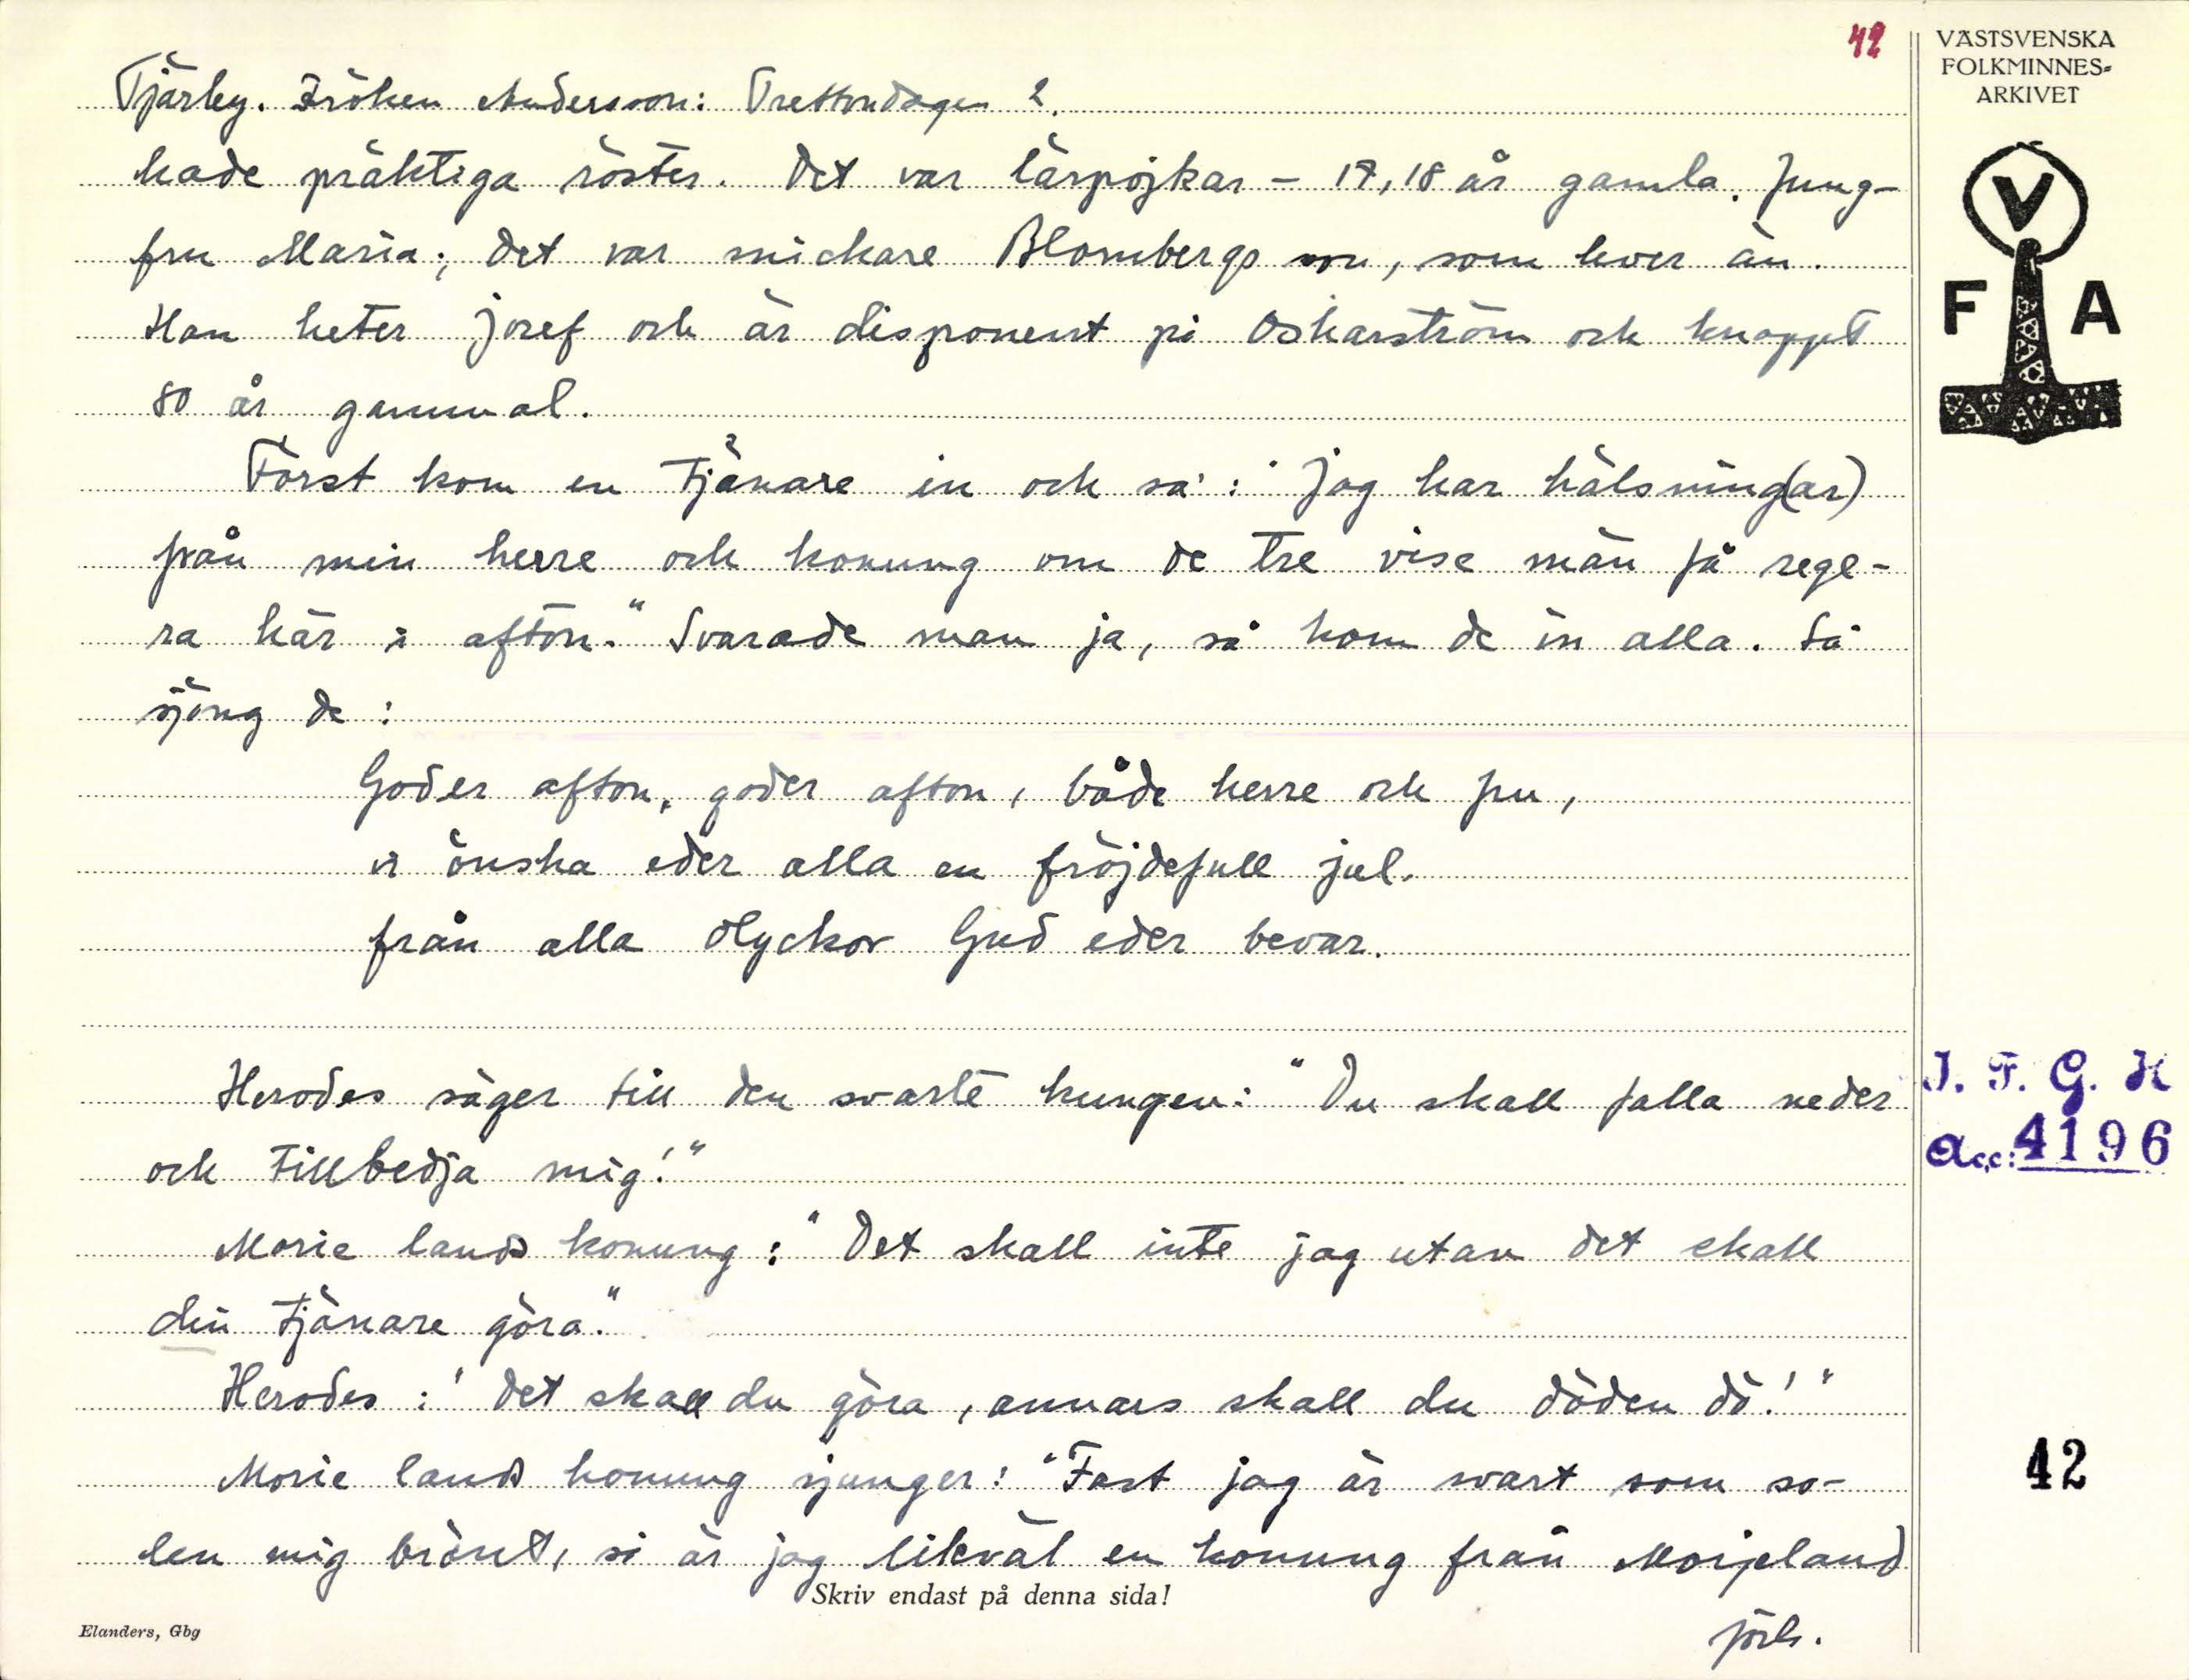 42
VÄSTSVENSKA
FOLKMINNES-
ARKIVET
V
F A
Tjärby. Fröken Andersson: Trettondagen 2.
hade präktiga röster. Det var lärpojkar – 17, 18 år gamla. Jung-
fru Maria; det var snickare Blombergs son, som lever än.
Han heter Josef och är disponent på Oskarström och knappt
80 år gammal.
Först kom en tjänare in och sa: "Jag har hälsning(ar)
från min herre och konung om de tre vise män få rege-
ra här i afton." Svarade man ja, så kom de in alla. Så
sjöng de:
Goder afton, goder afton, både herre och fru,
vi önska eder alla en fröjdefull jul.
från alla olyckor Gud eder bevar.
Herodes säger till den svarte kungen: "Du skall falla neder
och tillbedja mig!"
Morie lands konung: "Det skall inte jag utan det skall
din tjänare göra."
Herodes: "Det skall du göra, annars skall du döden dö!"
Morie lands konung sjunger: "Fast jag är svart som so-
len mig bränt, så är jag likväl en konung från Morjeland
forts.
I. F. G. H
Acc: 4196
42
Skriv endast på denna sida!
Elanders, Gbg